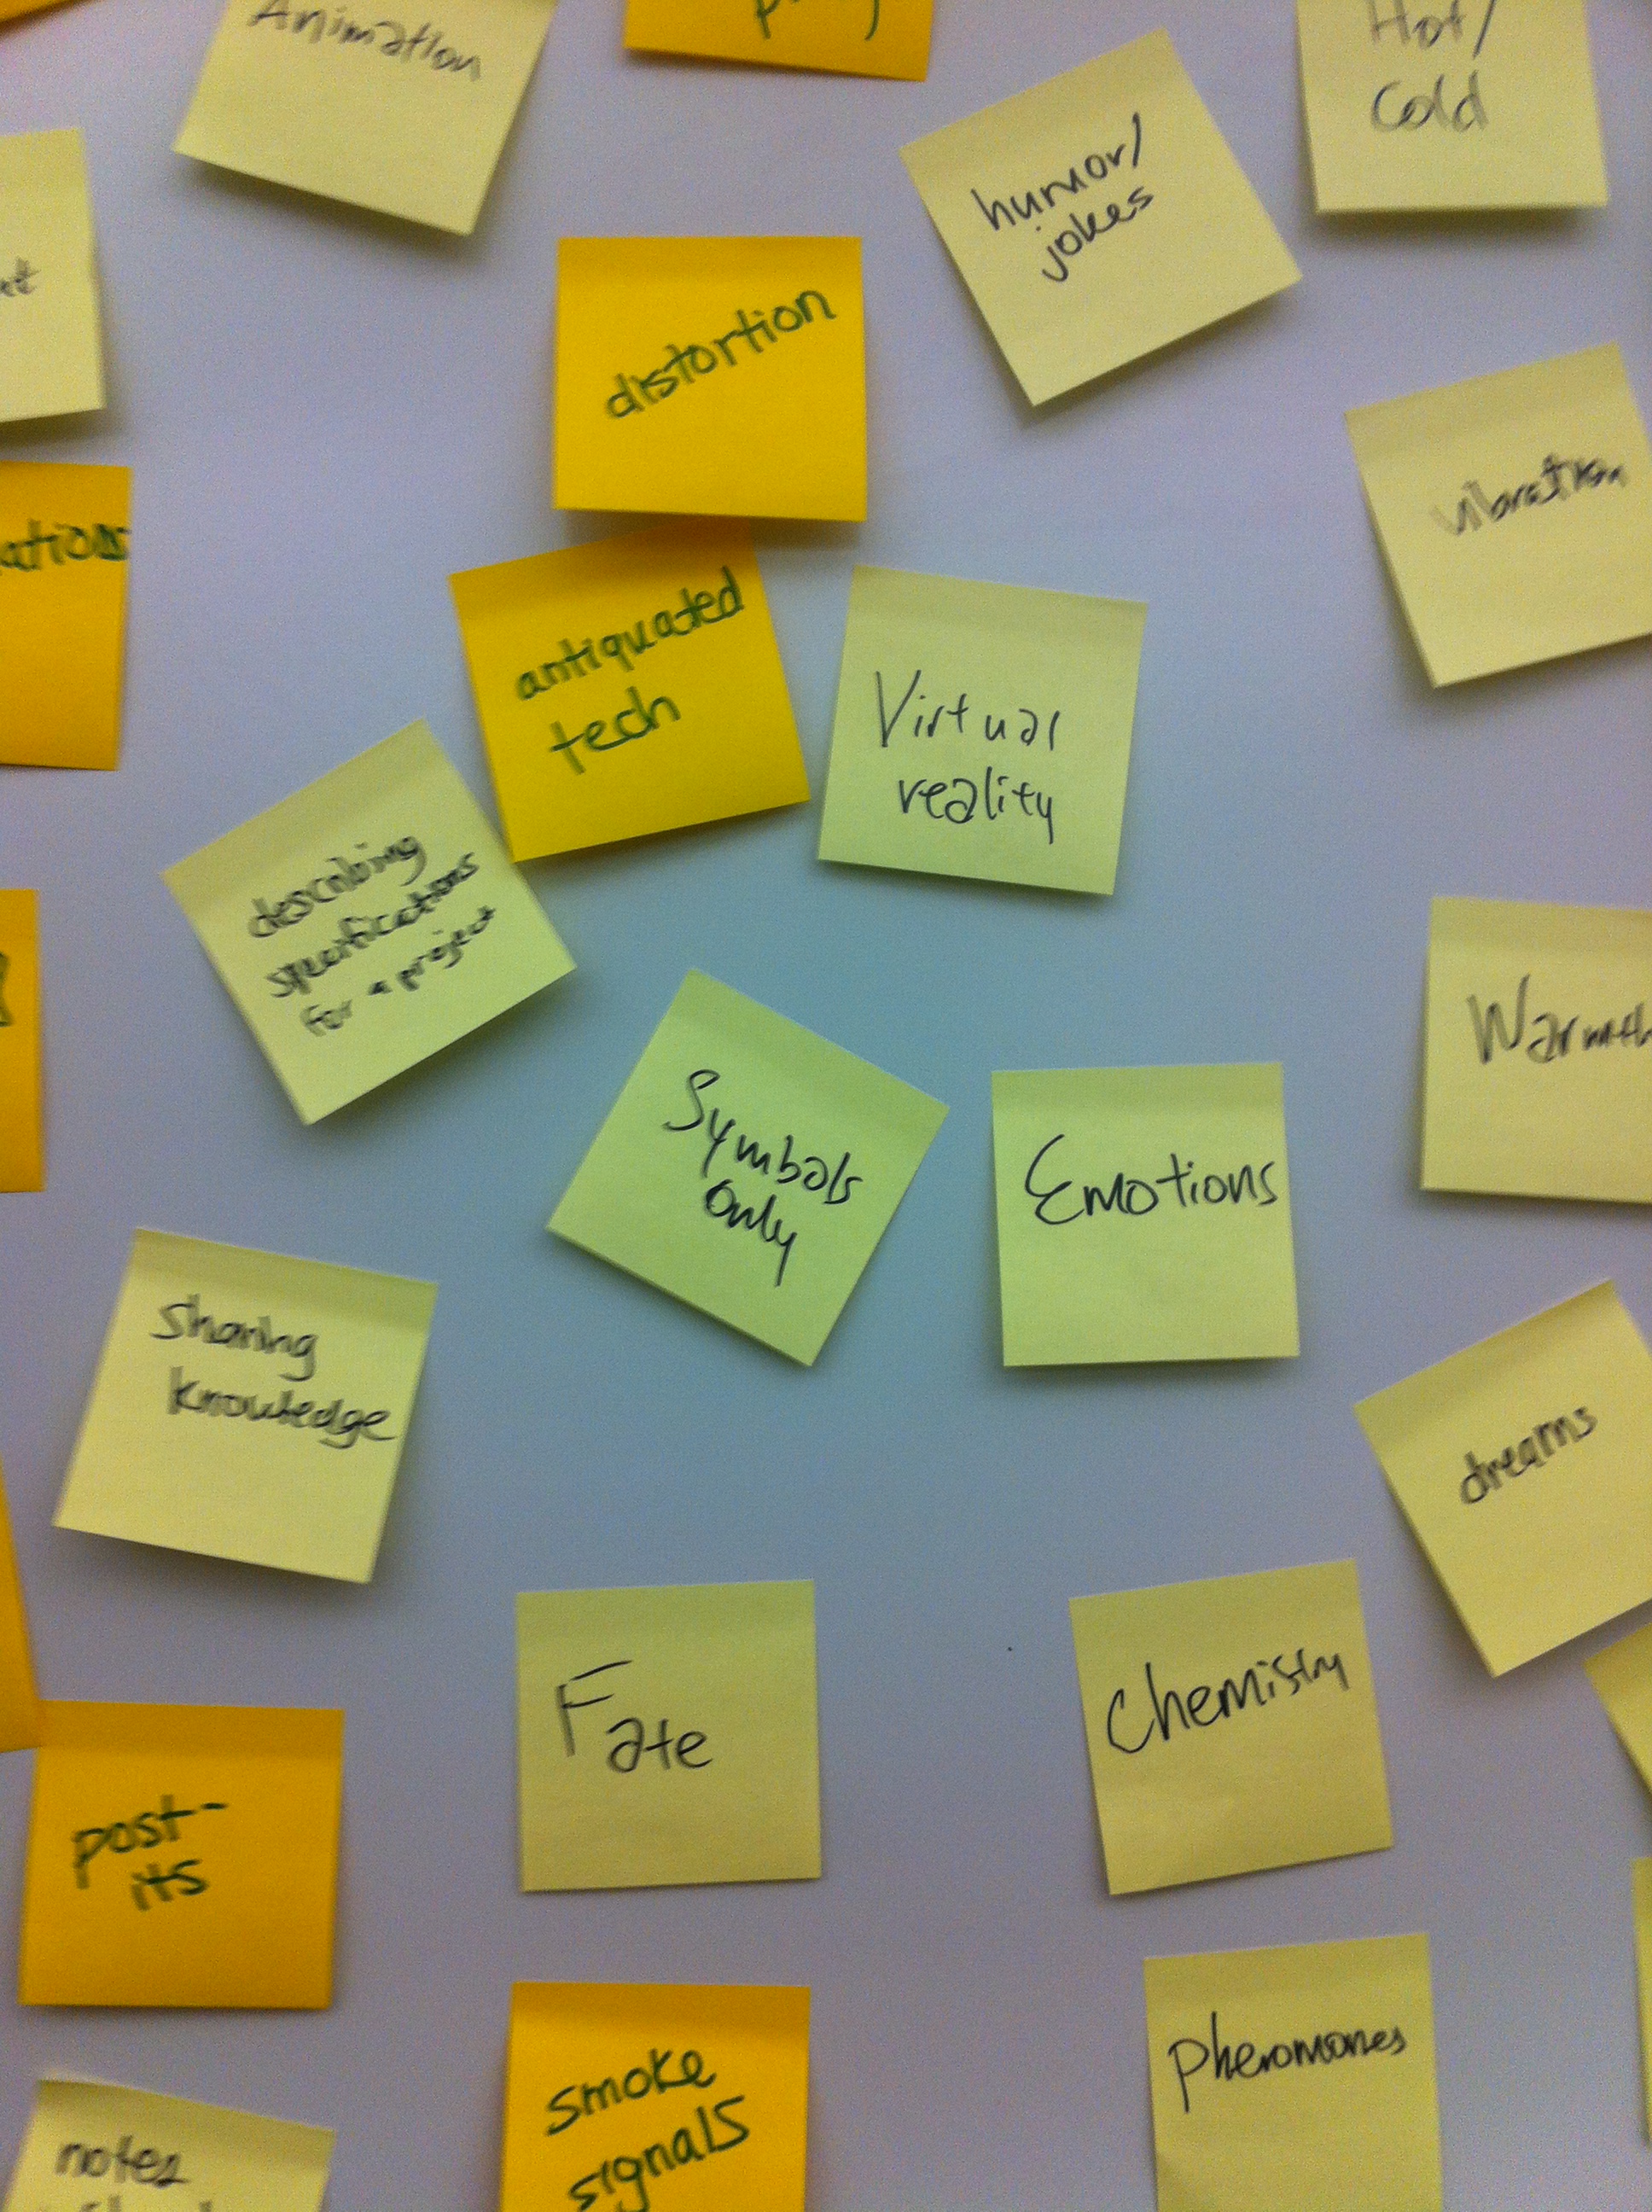 Animation
Hot/
Cold
humor/
jokes
distortion
vibration
antiquated
tech
Virtual
reality
describing
specifications
for a project
Warmth
Symbols
only
Emotions
Sharing
knowledge
dreams
Fate
Chemistry
post-
its
smoke
signals
Pheromones
notes